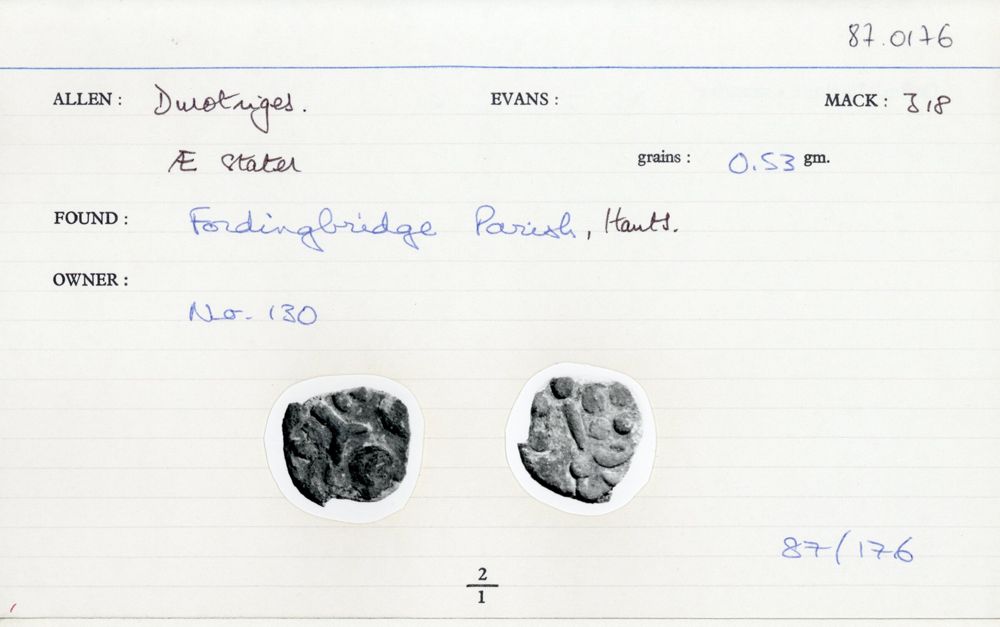 87.0176
ALLEN : Durotriges. EVANS : MACK : 318
Æ Stater grains : 0.53 gm.
FOUND : Fordingbridge Parish, Hants.
OWNER :
No. 130
87/176
2
1